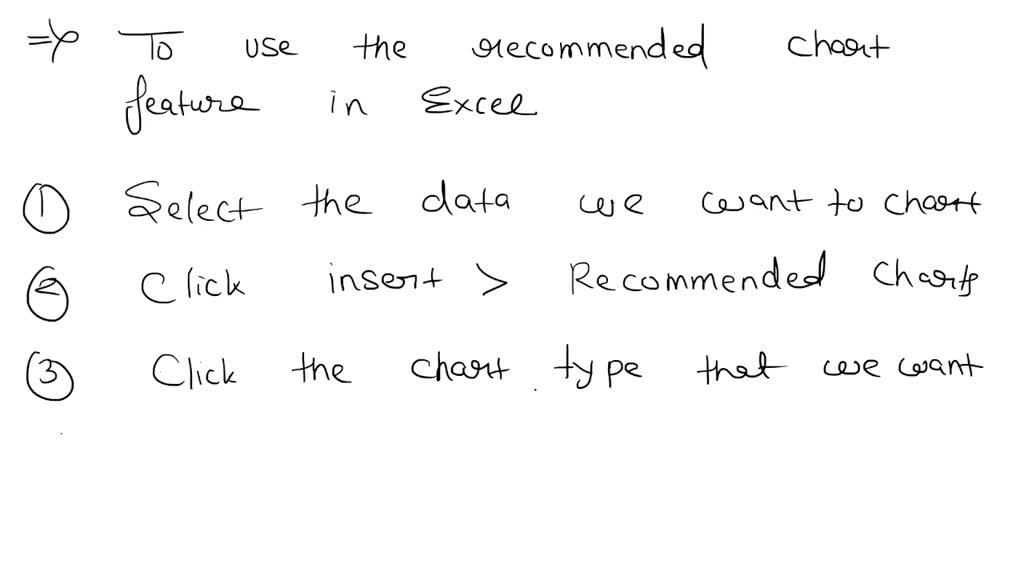 ⇒ To use the recommended chart
feature in Excel
① Select the data we want to chart
② Click insert > Recommended Charts
③ Click the chart type that we want